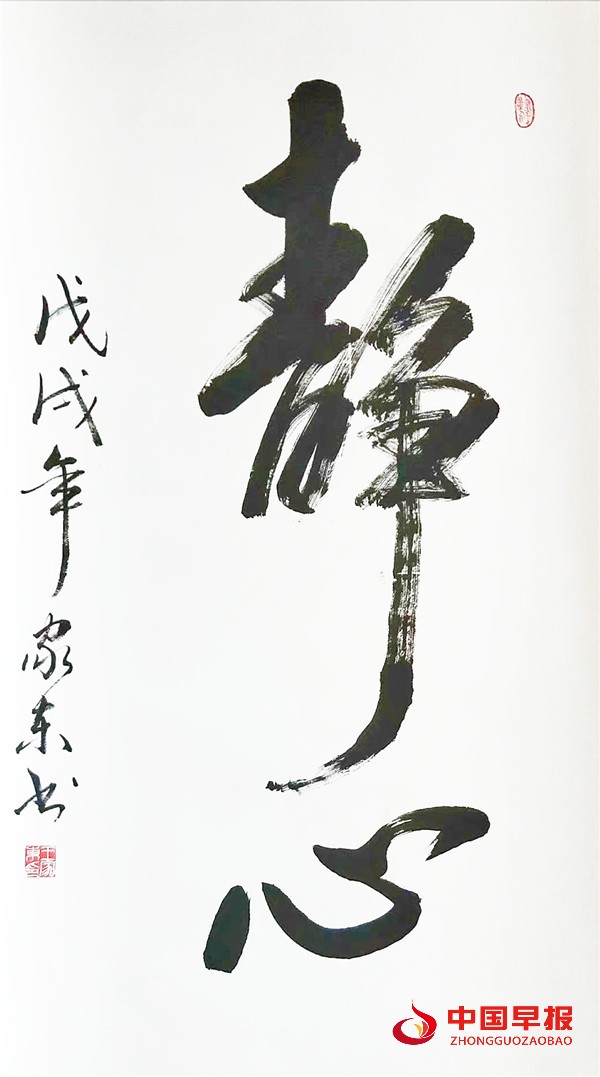 静心
戊戌年家东书
中国早报
ZHONGGUOZAOBAO